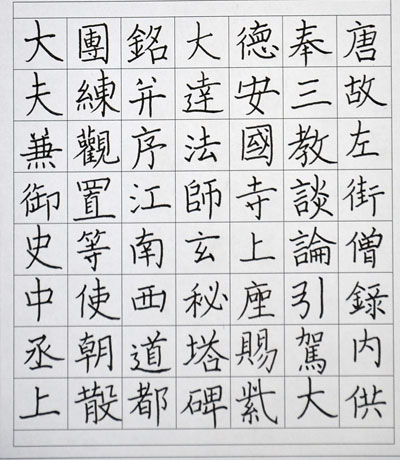 唐故左街僧録内供
奉三教談論引駕大
德安國寺上座賜紫
大達法師玄秘塔碑
銘并序江南西道都
團練觀置等使朝散
大夫兼御史中丞上